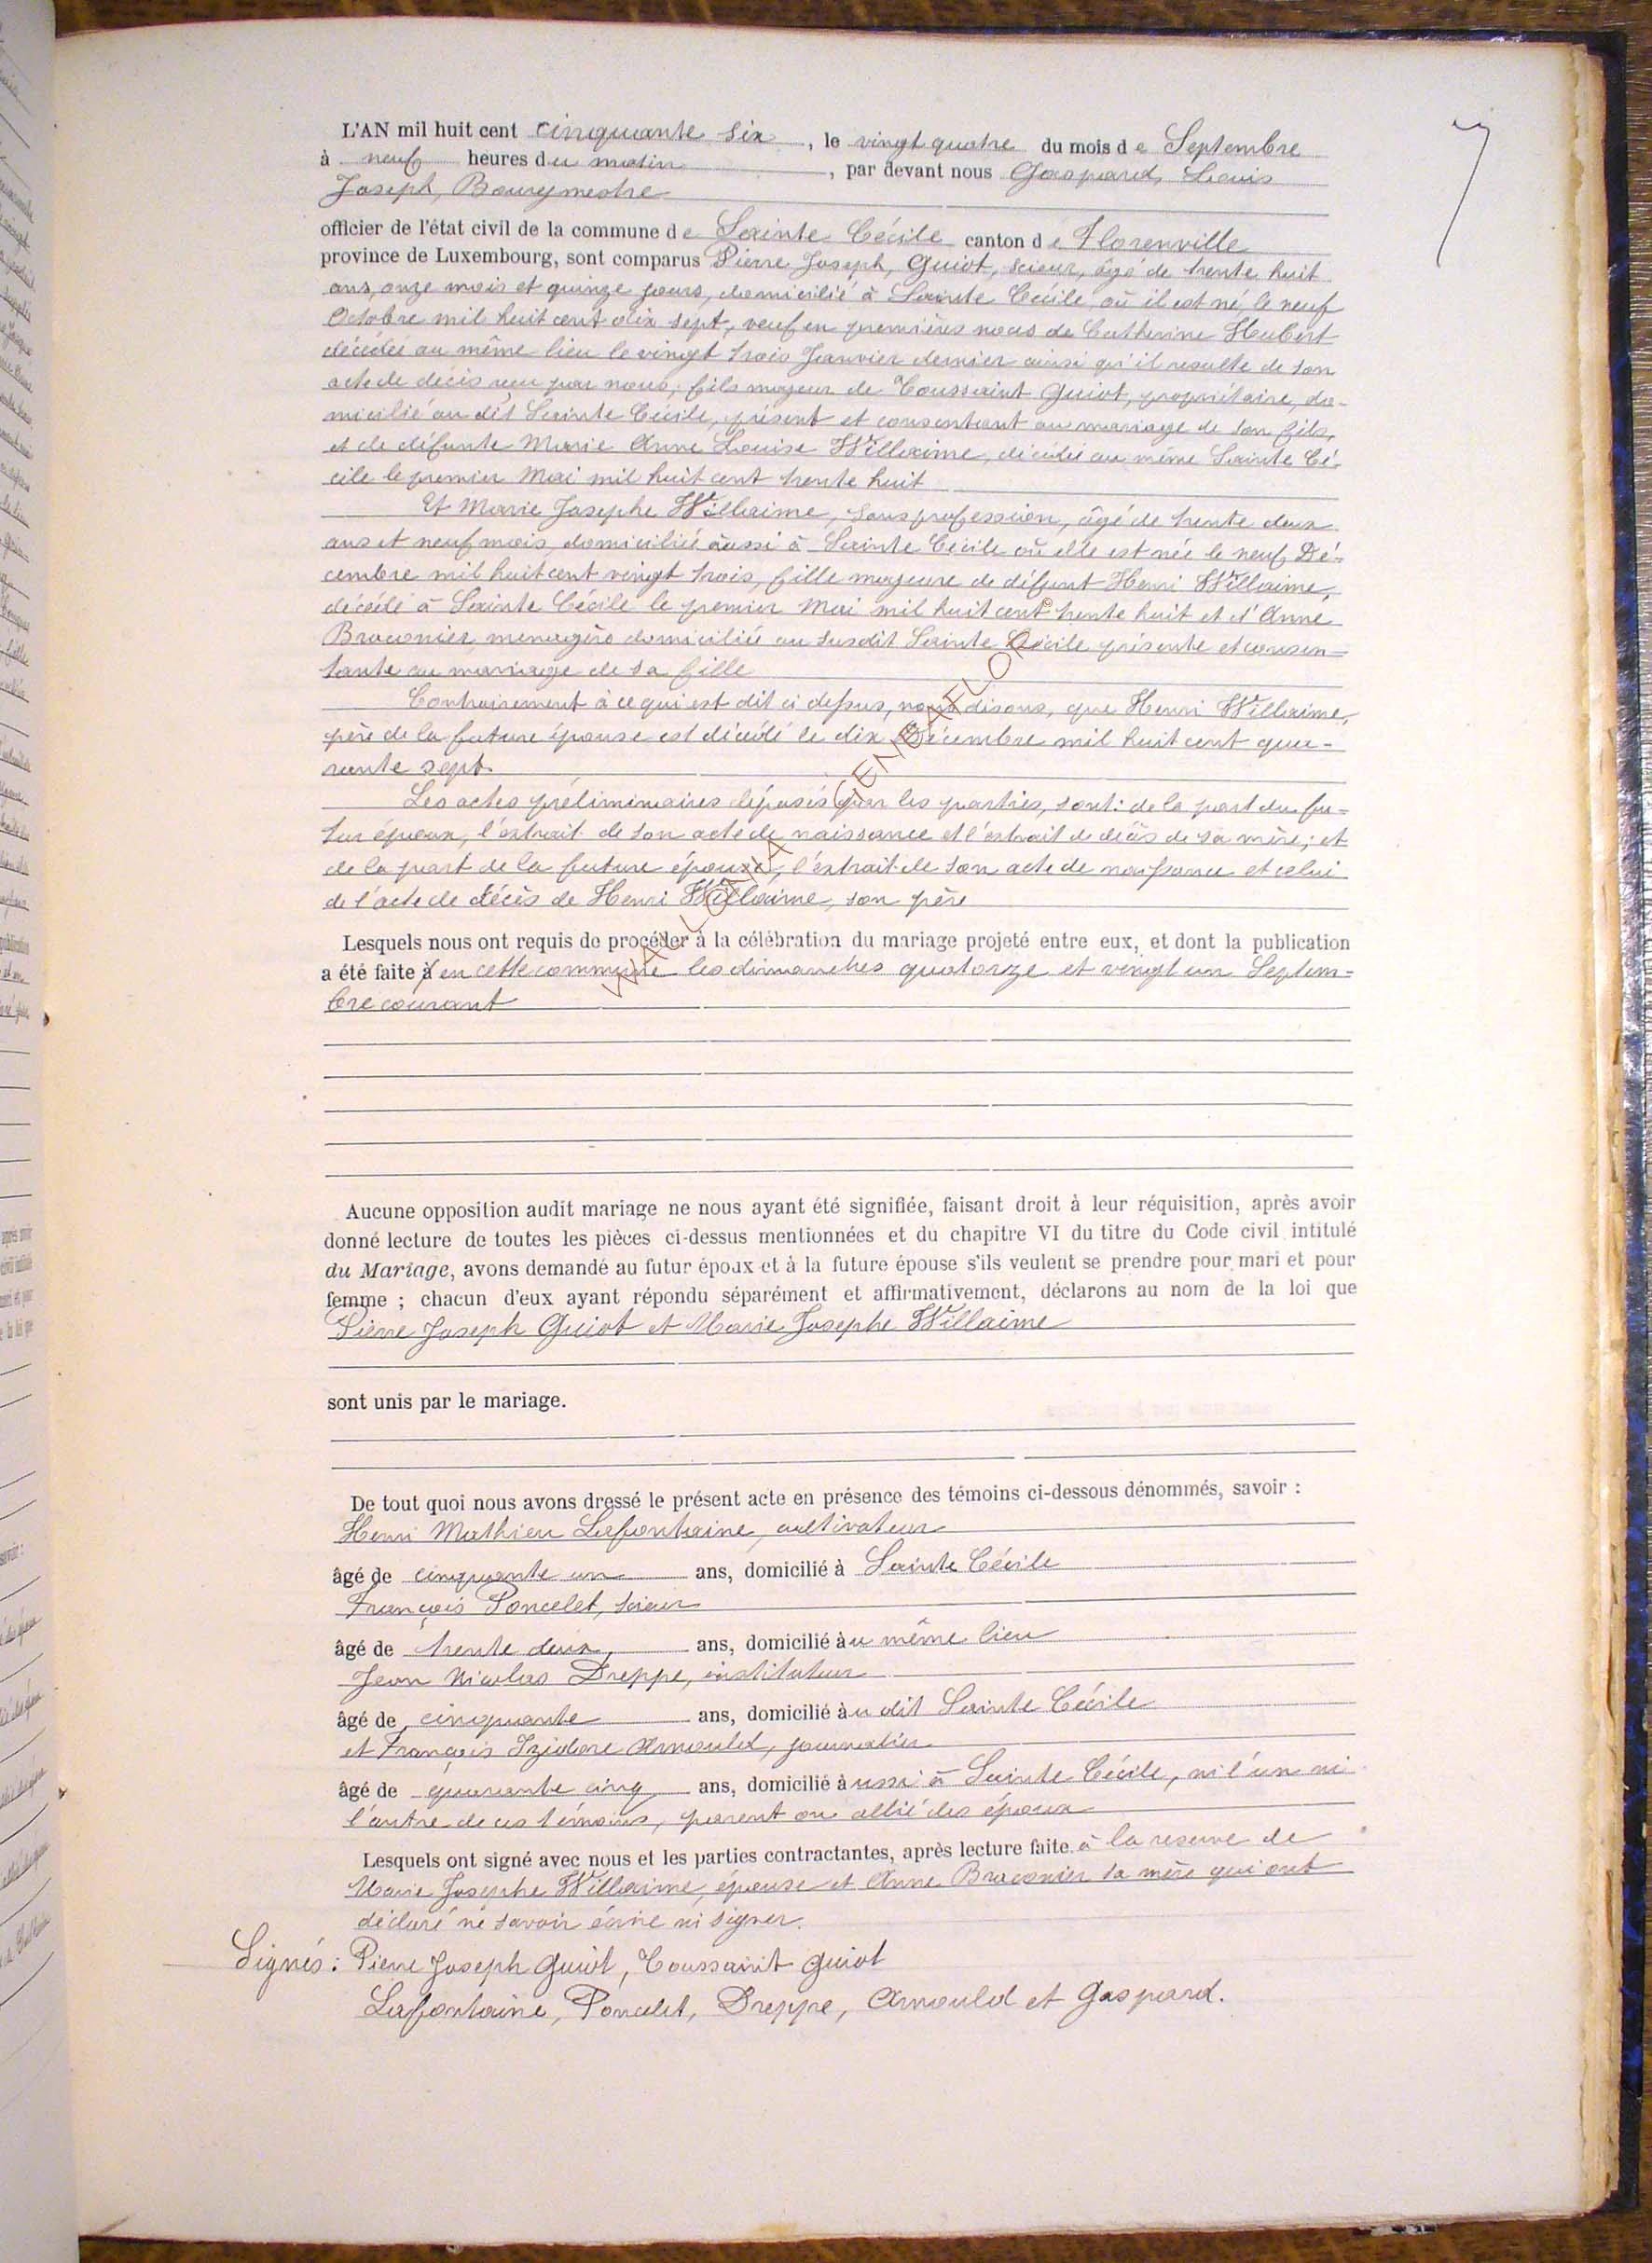 7
L'AN mil huit cent cinquante six, le vingt quatre du mois de Septembre
à neuf heures du matin, par devant nous Gaspard, Louis
Joseph, Bourgmestre
officier de l'état civil de la commune de Sainte Cécile canton de Florenville
province de Luxembourg, sont comparus Pierre Joseph, Guiot, scieur, âgé de trente huit
ans, onze mois et quinze jours, domicilié à Sainte Cécile où il est né, le neuf
Octobre mil huit cent dix sept, veuf en premières noces de Catherine Hubert
décédée au même lieu le vingt trois Janvier dernier ainsi qu'il resulte de son
acte de décès reçu par nous; fils majeur de Toussaint Guiot, propriétaire, do-
micilié au dit Sainte Cécile, présent et consentant au mariage de son fils,
et de défunte Marie Anne Louise Willaime, décédée au même Sainte Cé-
cile le premier Mai mil huit cent trente huit
Et Marie Josephe Willaime, sans profession, âgé de trente deux
ans et neuf mois, domiciliée aussi à Sainte Cécile où elle est née le neuf Dé-
cembre mil huit cent vingt trois, fille majeure de défunt Henri Willaime,
décédé à Sainte Cécile le premier Mai mil huit cent trente huit et d'Anne
Braconier, menagère domiciliée au susdit Sainte Cécile présente et consen-
tante au mariage de sa fille
Contrairement à ce qui est dit ci dessus, nous disons, que Henri Willaime,
père de la future épouse est décédé le dix Décembre mil huit cent qua-
rante sept.
Les actes préliminaires déposés par les parties, sont: de la part du fu-
tur époux, l'extrait de son acte de naissance et l'extrait de décès de sa mère; et
de la part de la future épouse, l'extrait de son acte de naissance et celui
de l'acte de décès de Henri Willaime, son père
Lesquels nous ont requis de procéder à la célébration du mariage projeté entre eux, et dont la publication
a été faite à en cette commune les dimanches quatorze et vingt un Septem-
bre courant
Aucune opposition audit mariage ne nous ayant été signifiée, faisant droit à leur réquisition, après avoir
donné lecture de toutes les pièces ci-dessus mentionnées et du chapitre VI du titre du Code civil intitulé
du Mariage, avons demandé au futur époux et à la future épouse s'ils veulent se prendre pour mari et pour
femme ; chacun d'eux ayant répondu séparément et affirmativement, déclarons au nom de la loi que
Pierre Joseph Guiot et Marie Josephe Willaime
sont unis par le mariage.
De tout quoi nous avons dressé le présent acte en présence des témoins ci-dessous dénommés, savoir :
Henri Mathieu Lafontaine, cultivateur
âgé de cinquante un ans, domicilié à Sainte Cécile
François Poncelet, scieur
âgé de trente deux, ans, domicilié àu même lieu
Jean Nicolas Dreppe, instituteur
âgé de cinquante ans, domicilié àu dit Sainte Cécile
et François Izidore Arnould, journalier
âgé de quarante cinq ans, domicilié àussi à Sainte Cécile, ni l'un ni
l'autre de ces témoins, parent ou allié des époux
Lesquels ont signé avec nous et les parties contractantes, après lecture faite. à la reserve de
Marie Josephe Willaime, épouse et Anne Braconier sa mère qui ont
déclaré né savoir écrire ni signer.
Signés: Pierre Joseph Guiot, Toussaint Guiot
Lafontaine, Poncelet, Dreppe, Arnould et Gaspard.
WALLONIA GENEAFLOR ©